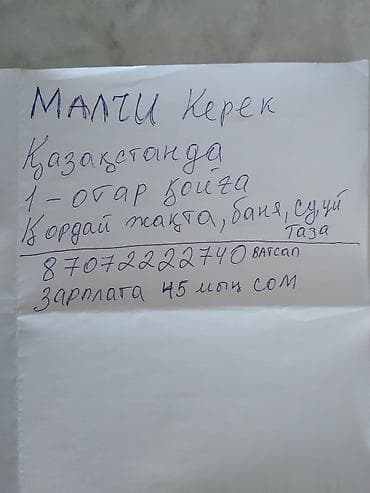 МАЛЧИ Керек
Қазақстанда
1 - отар қойға
Қордай жақта, баня, су, үй
таза
87072222740 ватсап
Зарплата 45 мың сом